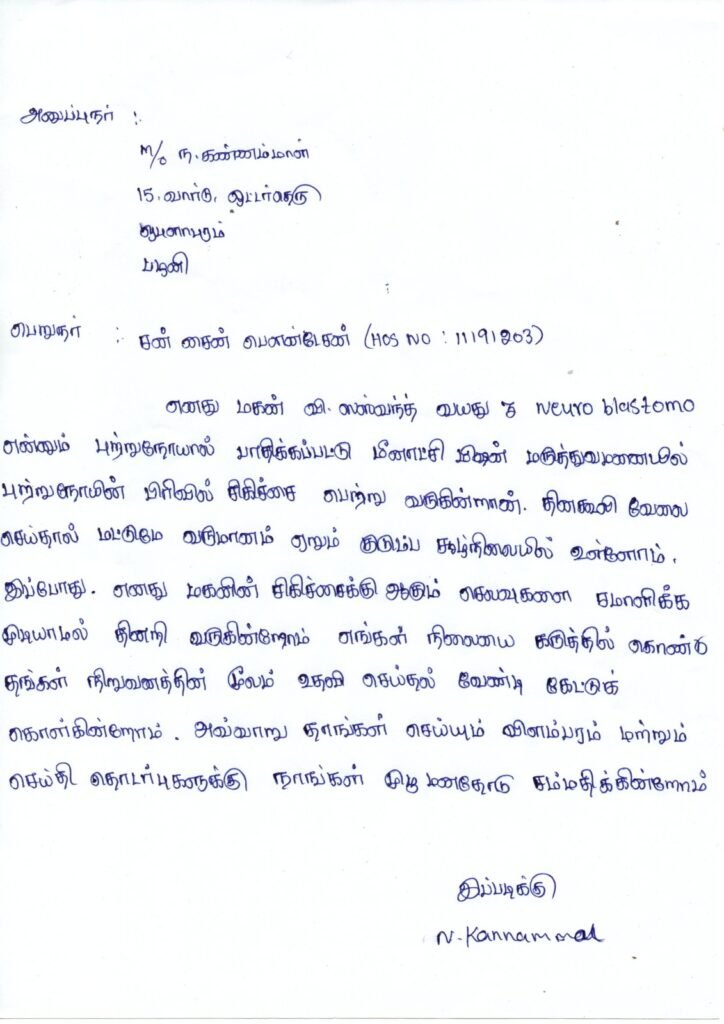 அனுப்புநர் :
M/o ந. கண்ணம்மாள்
15. வார்டு, ஒட்டர்தெரு
ஆயனாபுரம்
பழனி
பெறுநர் : சன் சைன் பௌண்டேசன் (HOS NO : 11191203)
எனது மகன் வி. யஸ்வந்த் வயது 3 Neuro blastomo
என்னும் புற்றுநோயால் பாதிக்கப்பட்டு மீனாட்சி மிஷன் மருத்துவமணையில்
புற்றுநோயின் பிரிவில் சிகிச்சை பெற்று வருகின்றான். தினகூலி வேலை
செய்தால் மட்டுமே வருமானம் ஏறும் குடும்ப சூழ்நிலையில் உள்ளோம்.
இப்போது. எனது மகனின் சிகிச்சைக்கு ஆகும் செலவுகளை சமாளிக்க
முடியாமல் தினறி வருகின்றோம் எங்கள் நிலையை கருத்தில் கொண்டு
தங்கள் நிறுவனத்தின் மூலம் உதவி செய்தல் வேண்டி கேட்டுக்
கொள்கின்றோம். அவ்வாறு தாங்கள் செய்யும் விளம்பரம் மற்றும்
செய்தி தொடர்புகளுக்கு நாங்கள் முழு மணதோடு சம்மதிக்கின்றோம்
இப்படிக்கு
N. Kannammal